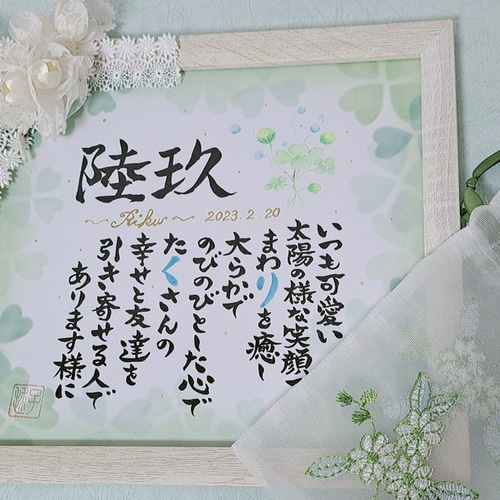 陸玖
~ Riku ~ 2023.2.20
いつも可愛い
太陽の様な笑顔で
まわりを癒し
大らかで
のびのびとした心で
たくさんの
幸せと友達を
引き寄せる人で
あります様に